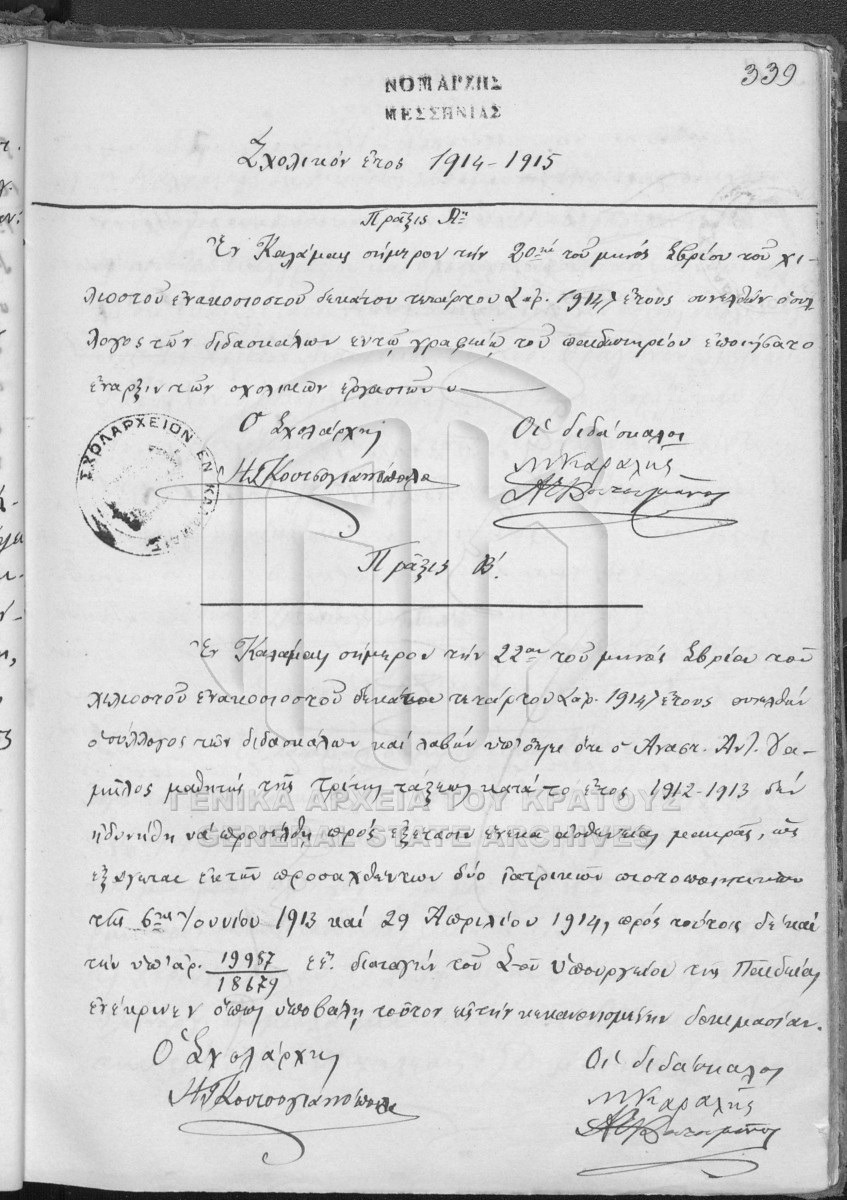 339
ΝΟΜΑΡΧΗΣ
ΜΕΣΣΗΝΙΑΣ
Σχολικόν ἔτος 1914-1915
Πρᾶξις Αη
Ἐν Καλάμαις σήμερον τήν 20ην τοῦ μηνός 7βρίου τοῦ χι-
λιοστοῦ ἐνακοσιοστοῦ δεκάτου τετάρτου (ἀρ. 1914) ἔτους συνελθών ὁ σύλ
λογος τῶν διδασκάλων ἐν τῷ γραφείῳ τοῦ παιδευτηρίου ἐποιήσατο
ἔναρξιν τῶν σχολικῶν ἐργασιῶν
Ὁ Σχολάρχης
Οἱ διδάσκαλοι
ΣΧΟΛΑΡΧΕΙΟΝ ΕΝ
Καραλῆς
Πρᾶξις Β΄.
Ἐν Καλάμαις σήμερον τήν 22αν τοῦ μηνός 7βρίου τοῦ
χιλιοστοῦ ἐνακοσιοστοῦ δεκάτου τετάρτου (ἀρ. 1914) ἔτους συνελθών
ὁ σύλλογος τῶν διδασκάλων καί λαβών ὑπ' ὄψιν ὅτι ὁ Ἀναστ. Ἀντ.
μαθητής τῆς τρίτης τάξεως κατά τό ἔτος 1912-1913 δέν
ἠδυνήθη νά προσέλθῃ πρός ἐξέτασιν ἕνεκα ἀσθενείας μακρᾶς, ὡς
ἐξάγεται ἐκ τῶν προσαχθέντων δύο ἰατρικῶν πιστοποιητικῶν
τῆς 6ης Ἰουνίου 1913 καί 29 Ἀπριλίου 1914, πρός τούτοις δέ καί
τήν ὑπ' ἀρ. 19957/18679 διαταγήν τοῦ Σ-οῦ Ὑπουργείου τῆς Παιδείας
ἐνέκρινεν ὅπως ὑποβάλῃ τοῦτον εἰς τήν κεκανονισμένην δοκιμασίαν.
Ὁ Σχολάρχης
Οἱ διδάσκαλοι
Καραλῆς
ΓΕΝΙΚΑ ΑΡΧΕΙΑ ΤΟΥ ΚΡΑΤΟΥΣ
GENERAL STATE ARCHIVES